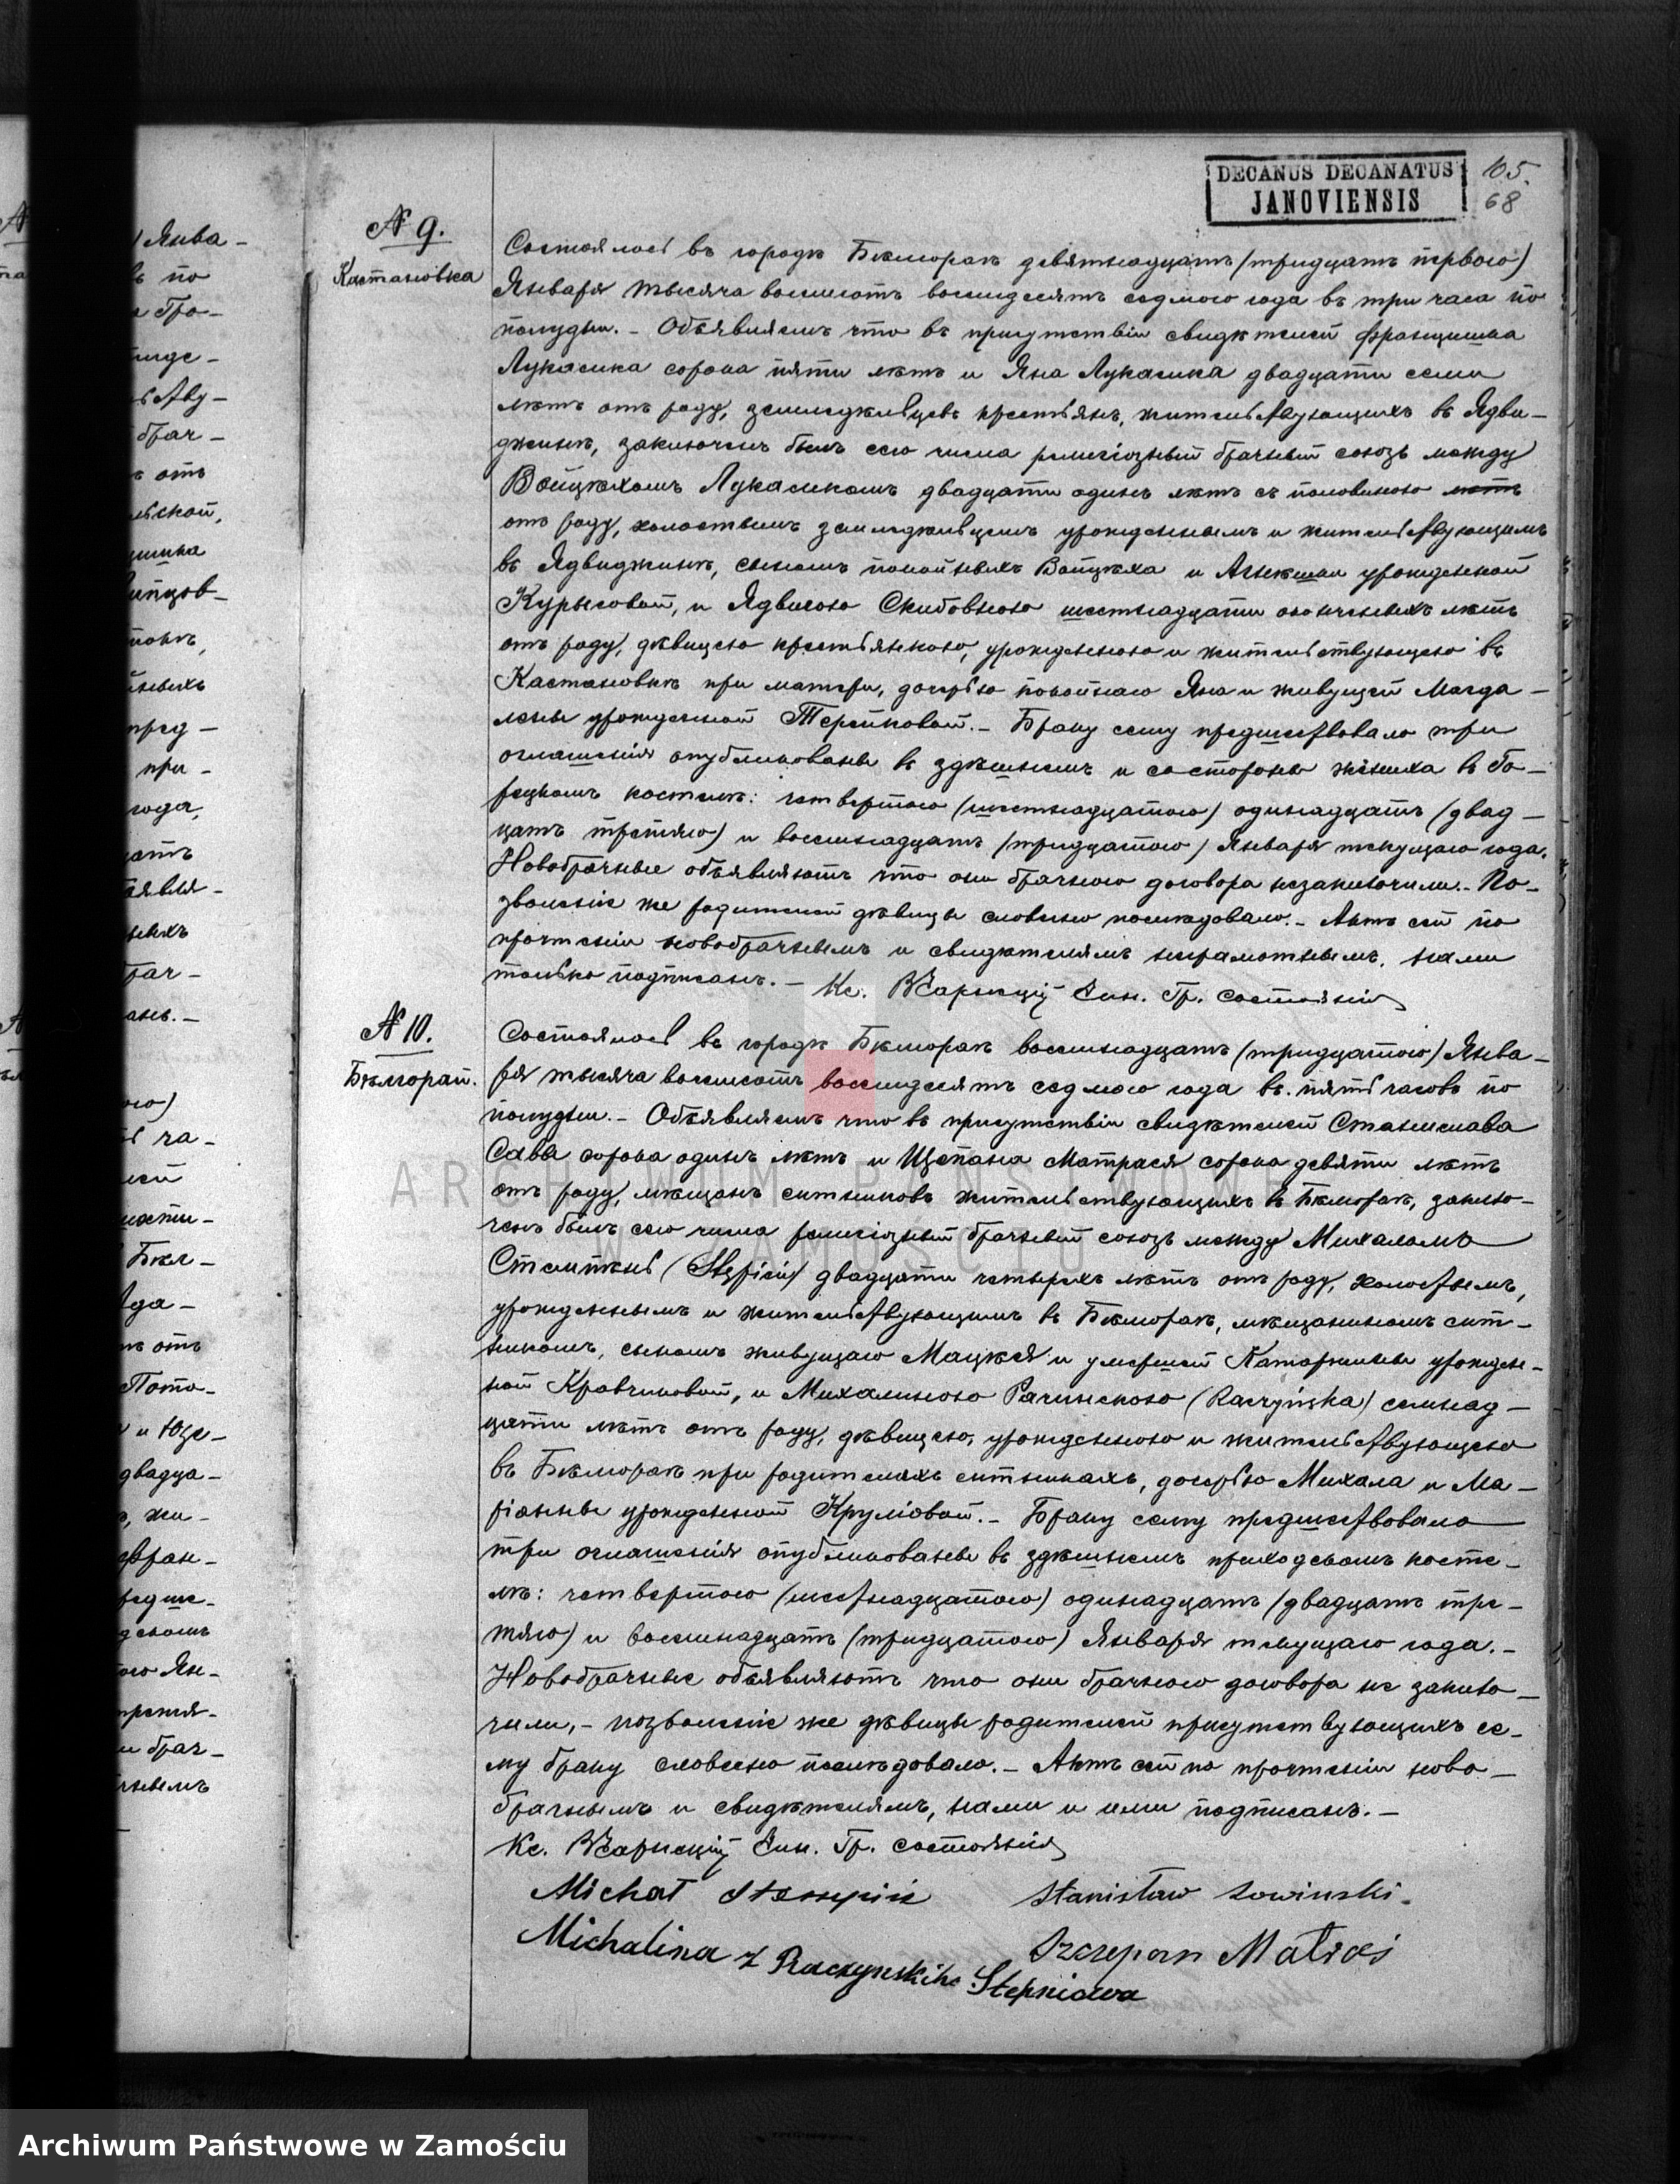 DECANUS DECANATUS
JANOVIENSIS
105.
68
№ 9.
Кастановка
Состоялось въ городѣ Бѣлгораѣ девятнадцатъ (тридцатъ первого)
Января тысяча восемьсотъ восемдесятъ седмого года въ три часа по
полудни. – Объявляемъ что въ присутствіи свидѣтелей Францишка
Лукасика сорока пяти лѣтъ и Яна Лукасика двадцати семи
лѣтъ отъ роду, земледѣльцевъ крестьянъ, жительствующихъ въ Ядви–
джинѣ, заключенъ былъ сего числа религіозный брачный союзъ между
Войцѣхомъ Лукасикомъ двадцати одинъ лѣтъ съ половиною лѣтъ
отъ роду, холостымъ земледѣльцемъ урожденнымъ и жительствующимъ
въ Ядвиджинѣ, сыномъ покойныхъ Войцѣха и Агнѣшки урожденной
, и Ядвигою Скибовною шестнадцати оконченныхъ лѣтъ
отъ роду, дѣвицею крестьянкою, урожденною и жительствующею въ
Кастановкѣ при матери, дочерью покойнаго Яна и живущей Магда–
лены урожденной . – Браку сему предшествовало три
оглашенія опубликованы въ здѣшнемъ и со стороны жениха въ Го–
рецкомъ костелѣ: четвертого (шестнадцатого) одинадцатъ (двад–
цатъ третяго) и восемнадцатъ (тридцатого) Января текущаго года.
Новобрачные объявляютъ что они брачного договора незаключили. – По–
зволеніе же родителей дѣвицы словесно послѣдовало. – Актъ сей по
прочтеніи новобрачнымъ и свидѣтелямъ неграмотнымъ, нами
только подписанъ. – Кс. Чин. Гр. состоянія
№ 10.
Бѣлгорай.
Состоялось въ городѣ Бѣлгораѣ восемнадцатъ (тридцатого) Янва–
ря тысяча восемьсотъ восемдесятъ седмого года въ пять часовъ по
полудни. – Объявляемъ что въ присутствіи свидѣтелей Станислава
сорока одинъ лѣтъ и Щепана Матрася сорока девяти лѣтъ
отъ роду, мѣщанъ ситниковъ жительствующихъ въ Бѣлгораѣ, заклю–
ченъ былъ сего числа религіозный брачный союзъ между Михаломъ
(Stępień) двадцати четырехъ лѣтъ отъ роду, холостымъ,
урожденнымъ и жительствующимъ въ Бѣлгораѣ, мѣщаниномъ сит–
никомъ, сыномъ живущаго Мацѣя и умершей Катаржины урожден–
ной Кравчиковой, и Михалиною Рачинскою (Raczyńska) семнад–
цати лѣтъ отъ роду, дѣвицею, урожденною и жительствующею
въ Бѣлгораѣ при родителяхъ ситникахъ, дочерью Михала и Ма–
ріанны урожденной Круліовой. – Браку сему предшествовало
три оглашенія опубликованы въ здѣшнемъ приходскомъ косте–
лѣ: четвертого (шестнадцатого) одинадцатъ (двадцатъ тре–
тяго) и восемнадцатъ (тридцатого) Января текущаго года. –
Новобрачные объявляютъ что они брачного договора не заклю–
чили, – позволеніе же дѣвицы родителей присутствующихъ се–
му браку словесно послѣдовало. – Актъ сей по прочтеніи ново–
брачнымъ и свидѣтелямъ, нами и ими подписанъ. –
Кс. Чин. Гр. состоянія
Michał Stempień Stanisław Sowinski.
Michalina z Raczynskih Stepniowa Szczepan Matraś
ARCHIWUM PAŃSTWOWE
W ZAMOŚCIU
Archiwum Państwowe w Zamościu